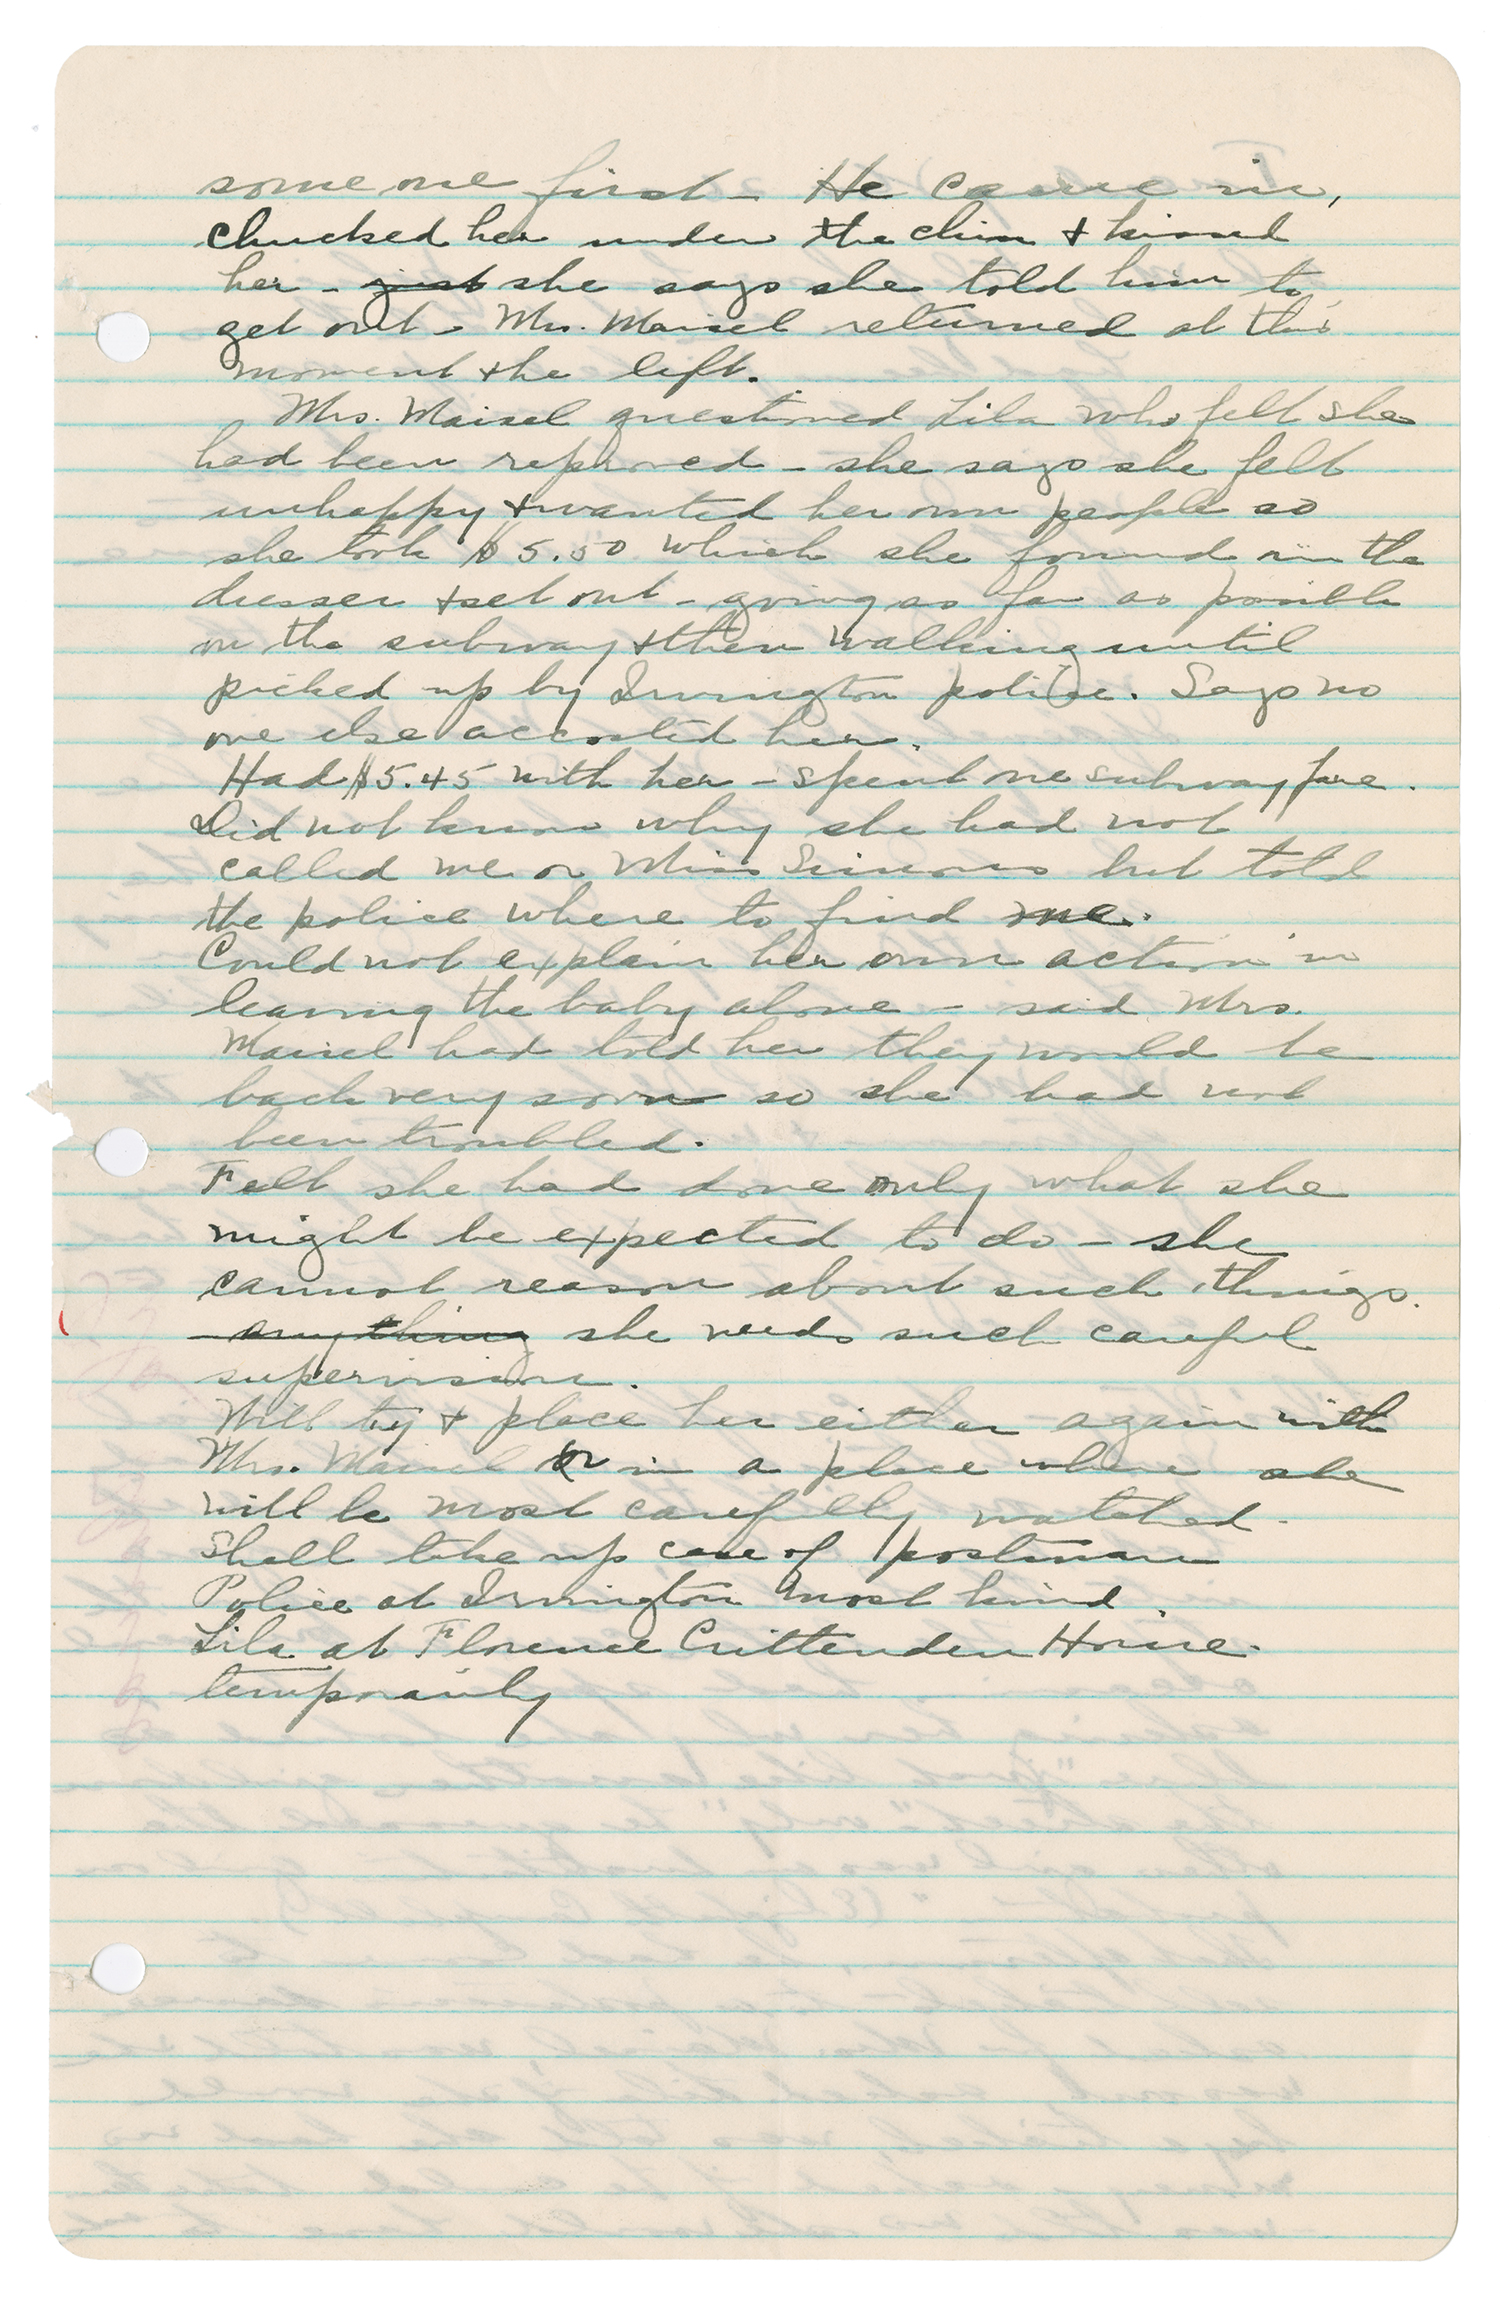 some one first - He came in,
chucked her under the chin & kissed
her - just she says she told him to
get out - Mrs. Maisel returned at this
moment & he left.
Mrs. Maisel questioned Lila who felt she
had been reproved - she says she felt
unhappy & wanted her own people so
she took $5.50 which she found in the
dresser & set out - going as far as possible
on the subway & then walking until
picked up by Irvington police. Says no
one else accosted her.
Had $5.45 with her - spent one subway fare.
Did not know why she had not
called me or Miss Simons but told
the police where to find me.
Could not explain her own action in
leaving the baby alone - said Mrs.
Maisel had told her they would be
back very soon so she had not
been troubled.
Felt she had done only what she
might be expected to do - she
cannot reason about such things.
- anything she needs such careful
supervision.
Will try & place her either again with
Mrs. Maisel or in a place where she
will be most carefully watched.
Shall take up case of postman
Police at Irvington most kind.
Lila at Florence Crittenden Home.
temporarily